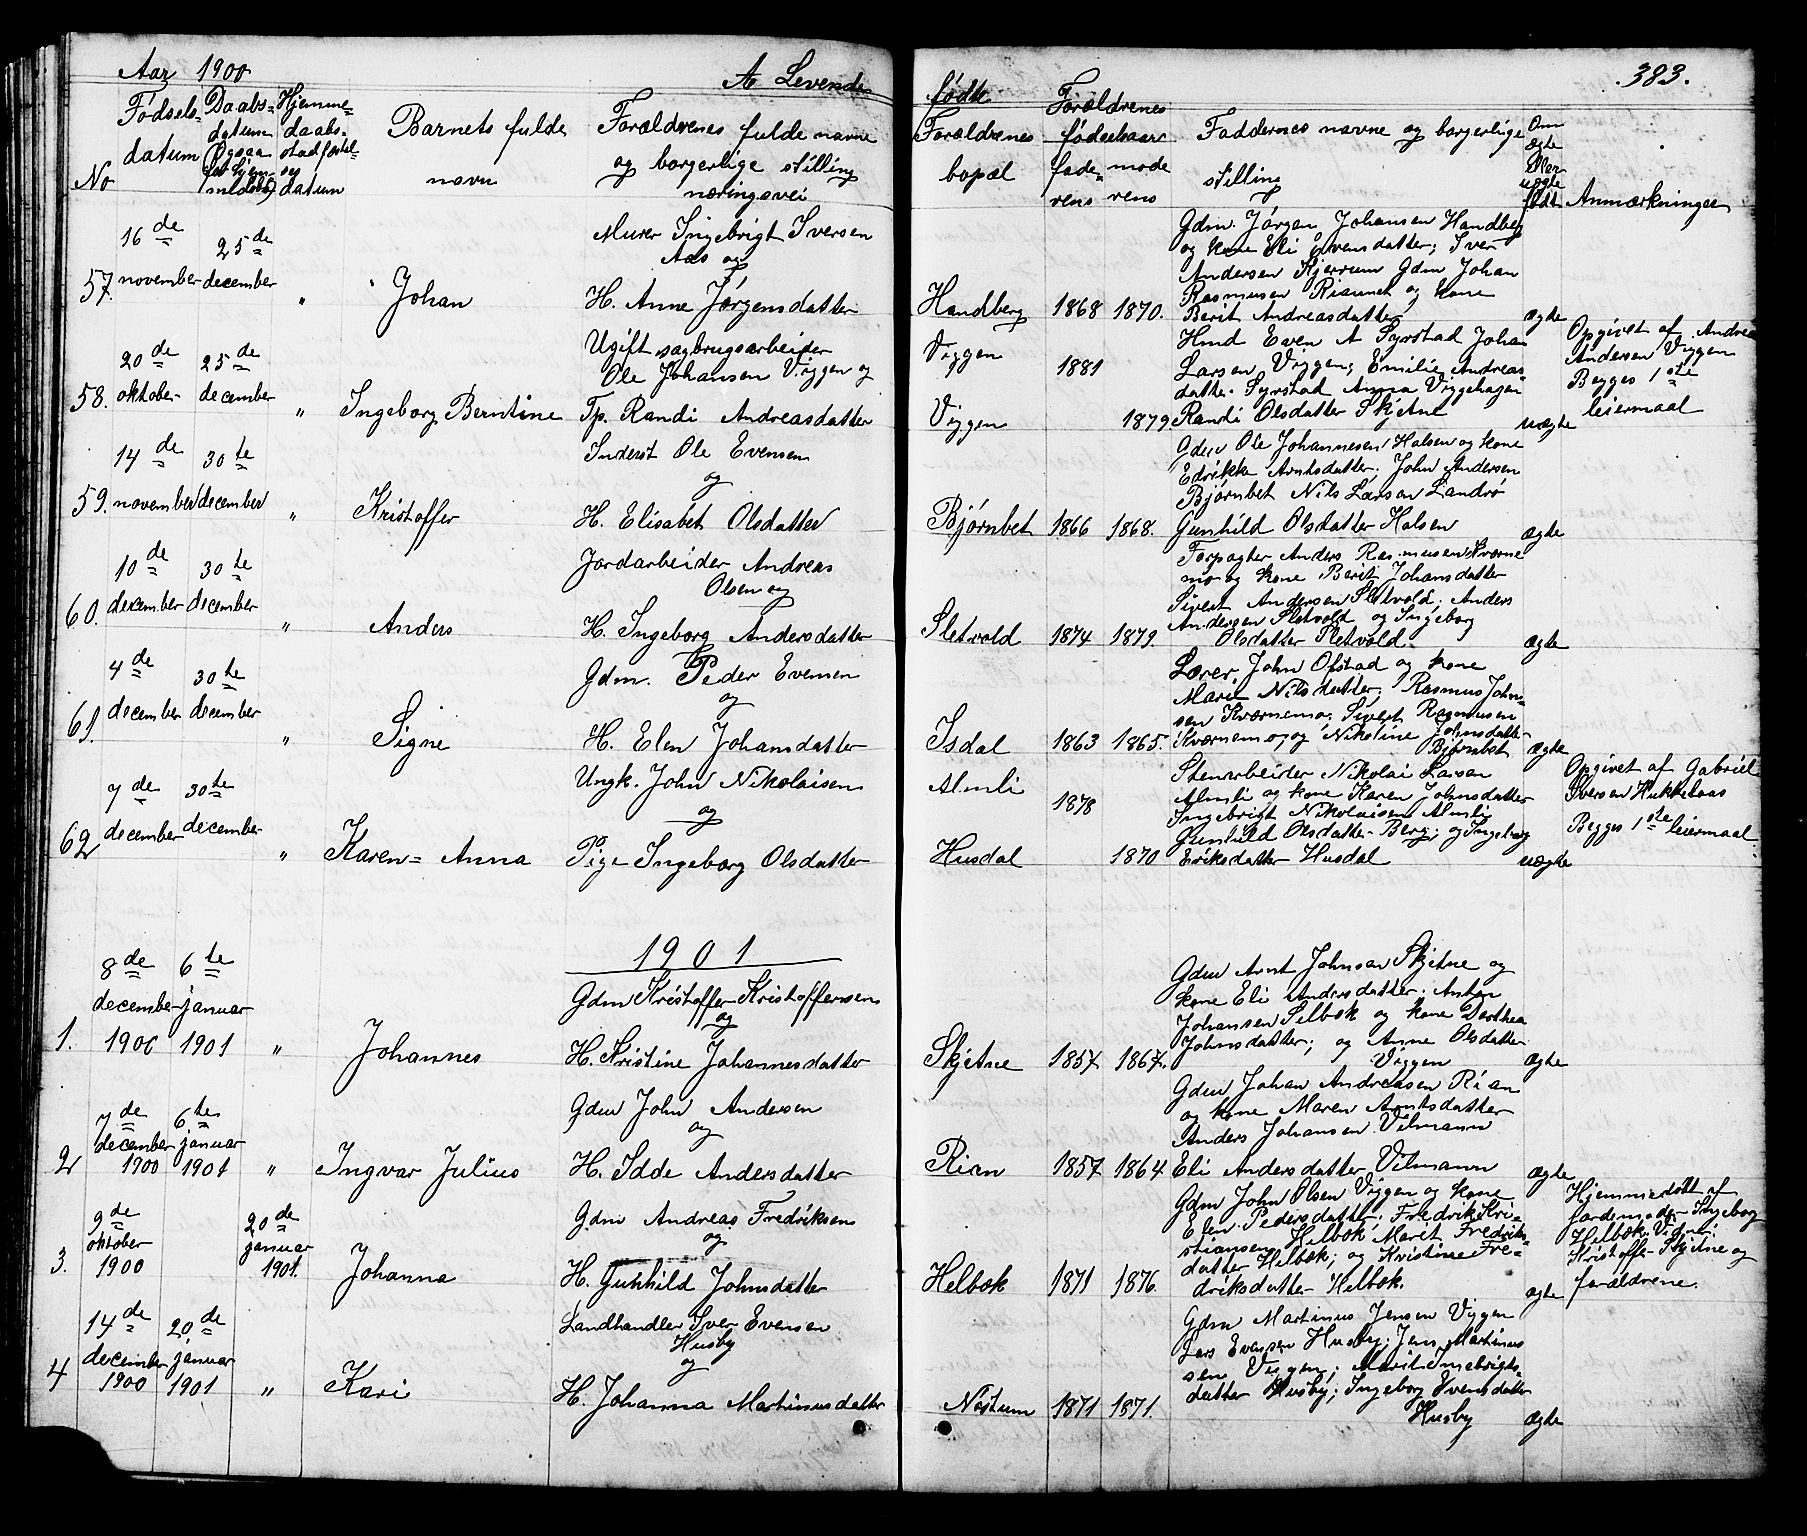 Aar 1900
A Levende
fødte.
383.
No
Fødsels-
datum
Daabs-
datum
Ogsaa
for hjem-
medøbt
Hjemme-
daabs-
stadfæstel-
datum
Barnets fulde
navn
Forældrenes fulde navne
og borgerlige stilling
næringsvei
Forældrenes
bopæl
Forældrenes
fødselsaar
fade-
rens
mode
rens
Faddernes navne og borgerlige
stilling
Om
ægte
eller
uægte
født
Anmærkninger
57.
16de
november
25de
december
"
Johan
Murer Ingebrigt Iversen
Aas og
H. Anne Jørgensdatter
Handberg
1868
1870.
Gdm. Jørgen Johansen Handberg
og kone Eli Evensdatter; Iver
Andersen Kjerrum Gdm Johan
Rasmusen og kone
Berit Andreasdatter
ægte
58.
20de
oktober
25de
december
"
Ingeborg Berntine
Ugift sagbrugsarbeider
Ole Johansen Viggen og
Tp. Randi Andreasdatter
Viggen
Viggen
1881
1879
Hmd Even A Syrstad Johan
Larsen Viggen; Emilie Andreas-
datter Syrstad Anna Viggehagen
Randi Olsdatter Skjetne
uægte
Opgivet af Andreas
Andersen Viggen
Begges 1ste
leiermaal
59.
14de
november
30te
december
"
Kristoffer
Inderst Ole Evensen
og
H. Elisabet Olsdatter
Bjørnbet
1866
1868.
Gdm Ole Johannesen Halsen og kone
Edrikke Arntsdatter. John Andersen
Bjørnbet Nils Larsen Landrø
Gunhild Olsdatter Halsen
ægte
60.
10de
december
30te
december
"
Anders
Jordarbeider Andreas
Olsen og
H. Ingeborg Andersdatter
Sletvold
1874
1879.
Forpagter Anders Rasmusen Kværne
mo og kone Berit Johansdatter
Sivert Andersen Sletvold; Anders
Andersen Sletvold og Ingeborg
Olsdatter Sletvold
ægte
61.
4de
december
30te
december
"
Signe
Gdm. Peder Evensen
og
H. Elen Johansdatter
Isdal
1863
1865.
Lærer John Ofstad og kone
Marie Nilsdatter; Rasmus John-
sen Kværnemo; Sivert Rasmusen
Kværnemo og Nikoline Johnsdatter
Bjørnbet
ægte
62
7de
december
30te
december
"
Karen= Anna
Ungk. John Nikolaisen
og
Pige Ingeborg Olsdatter
Almli
Husdal
1878
1870
Stenarbeider Nikolai Larsen
Almli og kone Karen Johnsdatter
Ingebrigt Nikolaisen Almli
Gunhild Olsdatter Berg; og Ingeborg
Eriksdatter Husdal
uægte
Opgivet af Gabriel
Iversen Hukkelaas
Begges 1ste leiermaal.
1901
1.
8de
december
1900
6te
januar
1901
"
Johannes
Gdm Kristoffer Kristoffersen
og
H. Kristine Johannesdatter
Skjetne
1857
1867.
Gdm Arnt Johnsen Skjetne og
kone Eli Andersdatter. Anton
Johansen Selbek og kone Dorthea
Johnsdatter; og Anne Olsdatter
Viggen
ægte
2
7de
december
1900
6te
januar
1901
"
Ingvar Julius
Gdm John Andersen
og
H. Idde Andersdatter
Rian
1857
1864
Gdm Johan Andreasen Rian
og kone Maren Arntsdatter
Anders Johansen Vilmann
Eli Andersdatter Vilmann
ægte
3.
9de
oktober
1900
20de
januar
1901.
Johanna
Gdm Andreas Fredriksen
og
H. Gunhild Johnsdatter
Helbok
1871
1876.
Gdm John Olsen Viggen og kone
Elen Pedersdatter; Fredrik Kri-
stiansen Helbok Maret Fredriks-
datter Helbok; og Kristine Fre-
driksdatter Helbok.
ægte
Hjemmedøbt af
jordemoder Ingeborg
Helbok. Vidner:
Kristoffer Skjetne og
forældrene.
4
14de
december
1900
20de
januar
1901
"
Kari
Landhandler Iver Evensen
Husby
og
H. Johanna Martinusdatter
Nøstum
1871
1871.
Gdm Martinus Jensen Viggen
Lars Evensen Husby; Jens Martinus
sen Viggen; Marit Ingebrigts-
datter Husby; Ingeborg Evensdatter
Husby
ægte